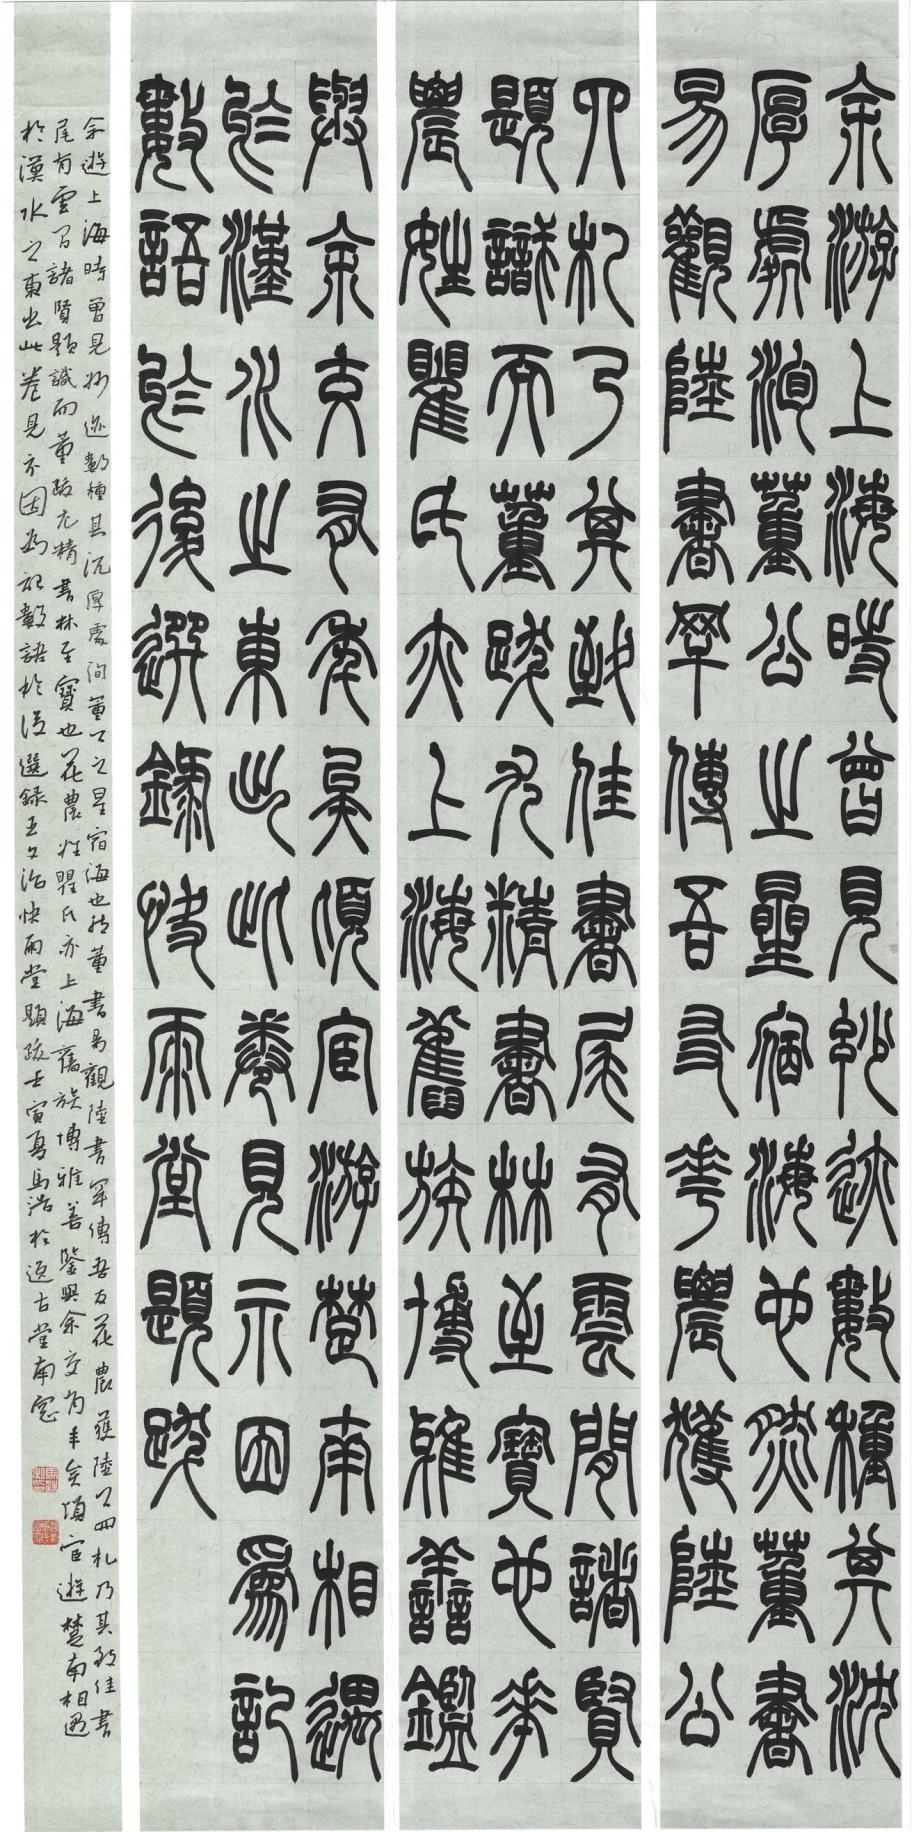 余游上海時曾見妙迹數種其沈
厚處洵董公之星宿海也然董書
易觀陸書罕傳吾友華農獲陸公
四札乃其致佳書尾有雲間諸賢
題識而董跋尤精書林至寶也華
農姓瞿氏亦上海舊族博雅善鑑
與余交有年矣頃宦游楚南相遇
於漢水之東出此卷見示因爲記
數語於後選錄快雨堂題跋
余遊上海時曾見妙迹數種其沉厚處洵董公之星宿海也然董書易觀陸書罕傳吾友花農獲陸公四札乃其致佳書
尾有雲間諸賢題識而董跋尤精書林至寶也花農姓瞿氏亦上海舊族博雅善鑒與余交有年矣頃宦遊楚南相遇
於漢水之東出此卷見示因為記數語於後選錄王文治快雨堂題跋壬寅夏馬浩於古堂南窗